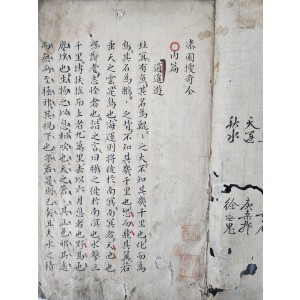 漆園搜奇
内篇
逍遥遊
北冥有魚其名爲鯤〻之大不知其幾千里也化而爲
鳥其名爲鵬〻之背不知其幾千里也怒而飛其翼若
垂天之雲是鳥也海運則將徙於南冥南冥者天池也
齊諧者志怪者也諧之言曰鵬之徙於南冥也水擊三
千里摶扶搖而上者九萬里去以六月息者也野馬也
塵埃也生物之以息相吹也天之蒼〻其正色邪其遠
而無所至極邪其視下也亦若是則已矣且夫水之積
秋水
庚桑楚
徐无鬼